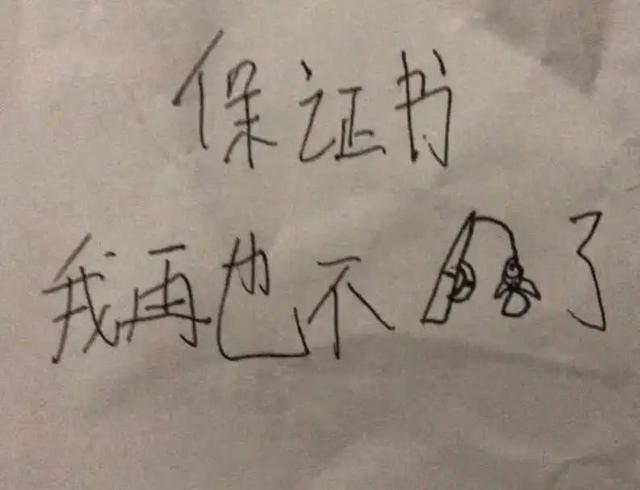 保证书
我再也不了